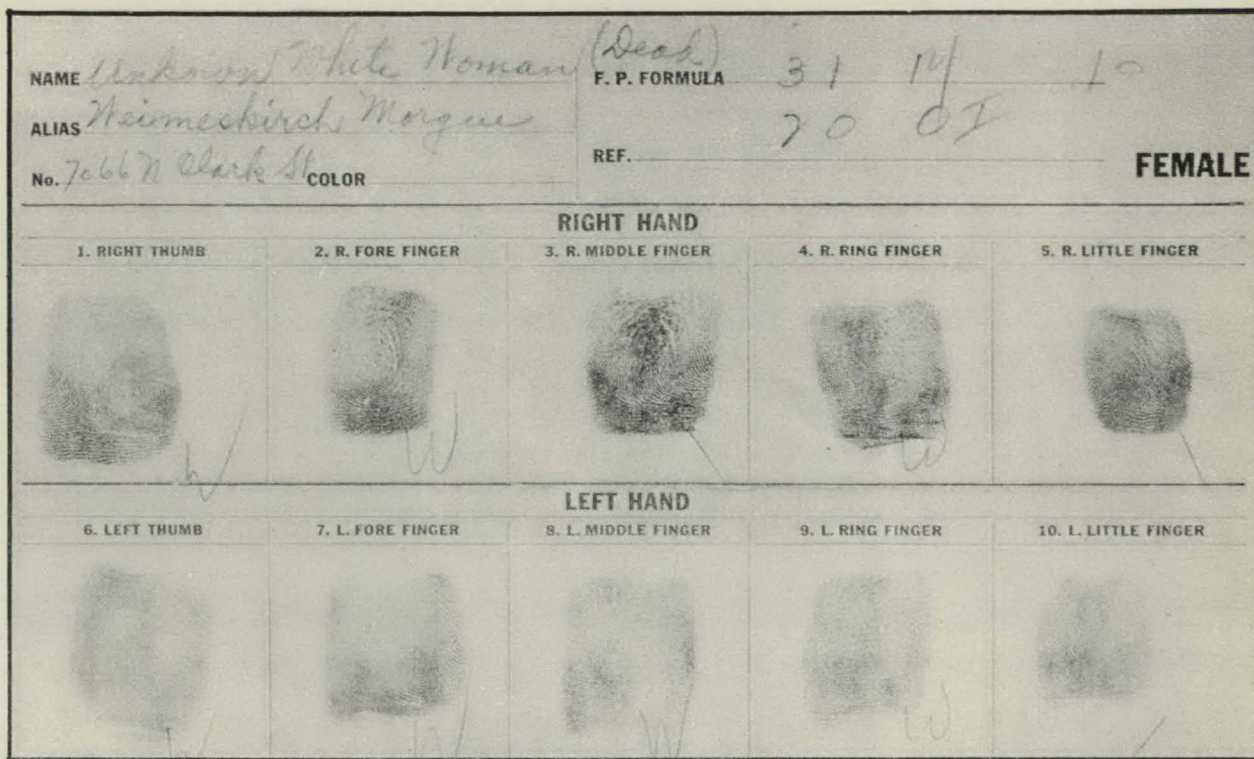 NAME Unkown White Woman (Dead)
F. P. FORMULA 31 M 10
ALIAS Weimeskirch Morgue
20 OI
No. 7066 N Clark St. COLOR
REF.
FEMALE
RIGHT HAND
1. RIGHT THUMB 2. R. FORE FINGER 3. R. MIDDLE FINGER 4. R. RING FINGER 5. R. LITTLE FINGER
W W \ W \
LEFT HAND
6. LEFT THUMB 7. L. FORE FINGER 8. L. MIDDLE FINGER 9. L. RING FINGER 10. L. LITTLE FINGER
W W W /